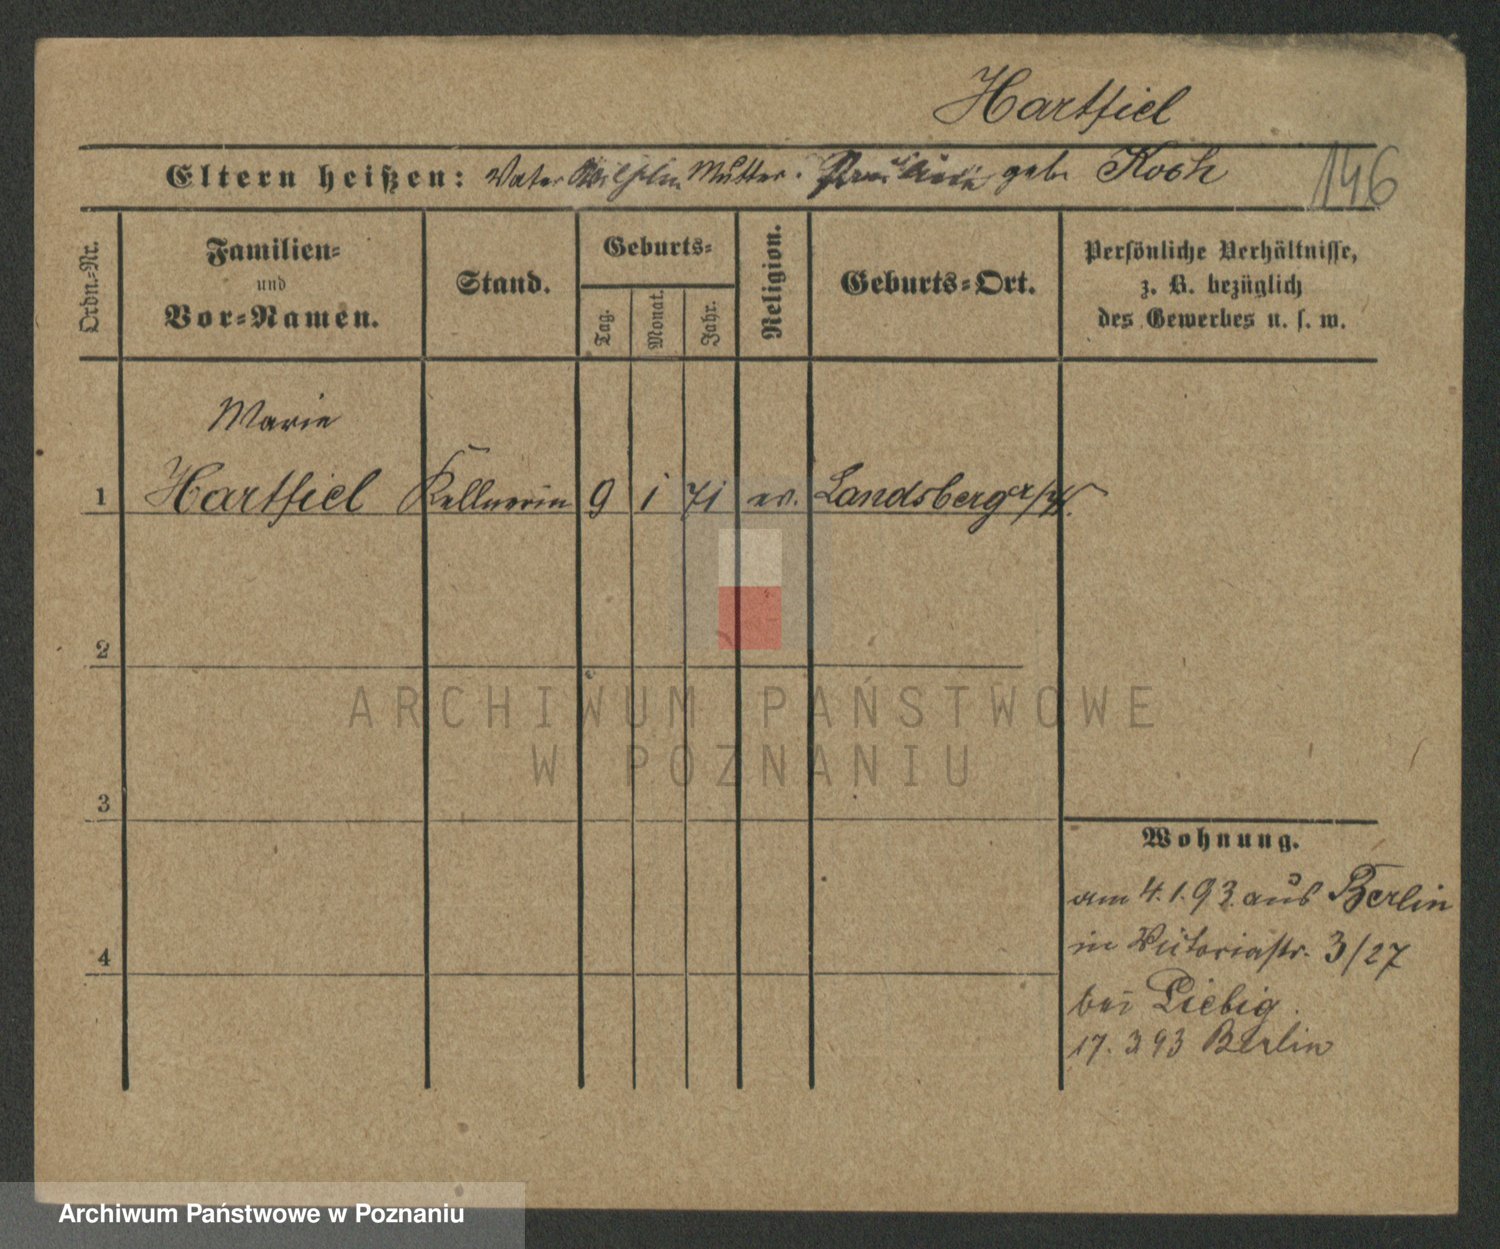 Hartfiel
Eltern heißen: Vater Wilhelm Mutter. geb. Koch
146
Ordn.-Nr.
Familien-
und
Vor-Namen.
Stand.
Geburts-
Tag.
Monat.
Jahr.
Religion.
Geburts-Ort.
Persönliche Verhältnisse,
z. B. bezüglich
des Gewerbes u. s. w.
Marie
1 Hartfiel Kellnerin 9 1 71 ev. Landsberg a/W.
2
3
4
Wohnung.
am 4.1.93 aus Berlin
in Victoriastr. 3/27
bei Liebig.
17. 3 93 Berlin
ARCHIWUM PAŃSTWOWE
W POZNANIU
Archiwum Państwowe w Poznaniu